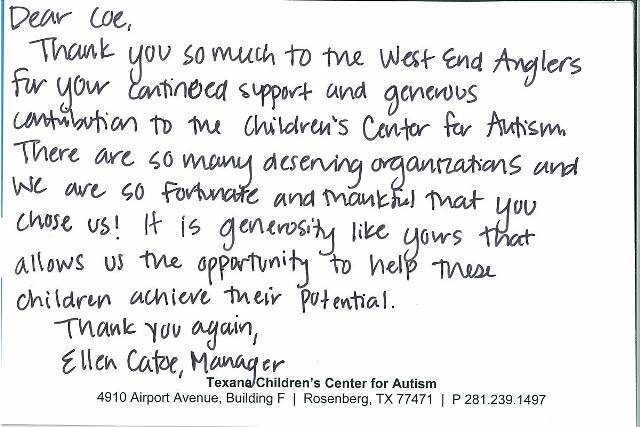 Dear Coe,
Thank you so much to the West End Anglers
for your continued support and generous
contribution to the Children's Center for Autism.
There are so many deserving organizations and
we are so fortunate and thankful that you
chose us! It is generosity like yours that
allows us the opportunity to help these
children achieve their potential.
Thank you again,
Ellen Catoe, Manager
Texana Children's Center for Autism
4910 Airport Avenue, Building F | Rosenberg, TX 77471 | P 281.239.1497